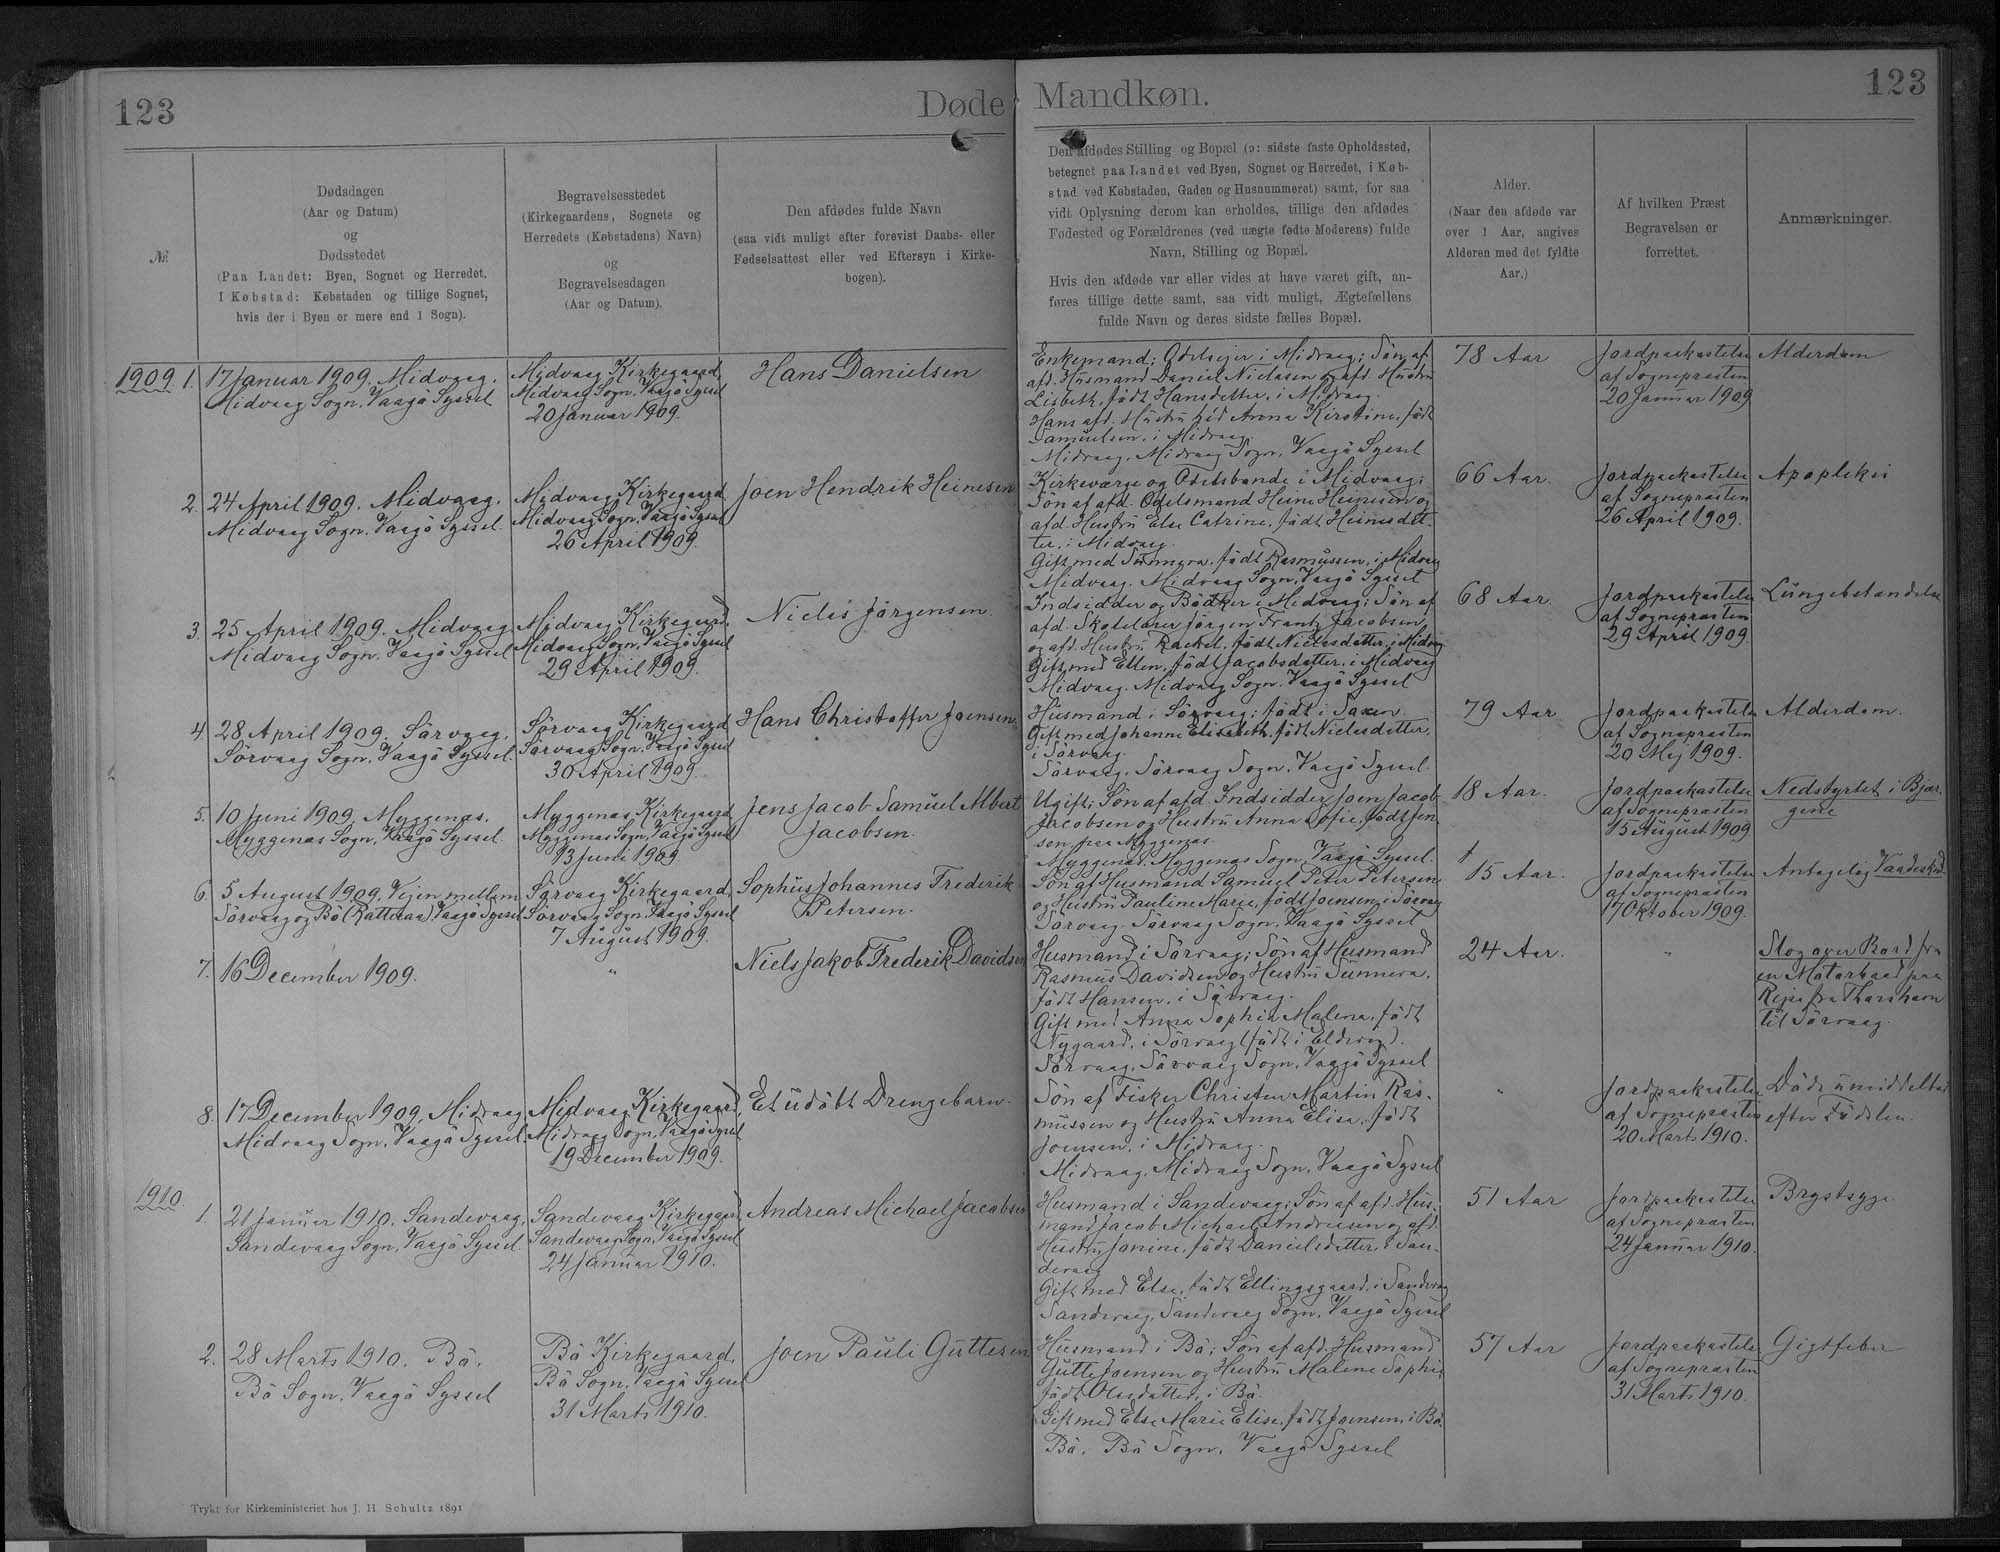 123
Døde Mandkøn.
123
№
Dødsdagen
(Aar og Datum)
og
Dødsstedet
(Paa Landet: Byen, Sognet og Herredet.
I Købstad: Købstaden og tillige Sognet,
hvis der i Byen er mere end 1 Sogn).
Begravelsesstedet
(Kirkegaardens, Sognets og
Herredets (Købstadens) Navn)
og
Begravelsesdagen
(Aar og Datum).
Den afdødes fulde Navn
(saa vidt muligt efter forevist Daabs- eller
Fødselsattest eller ved Eftersyn i Kirke-
bogen).
Den afdødes Stilling og Bopæl (ɔ: sidste faste Opholdssted,
betegnet paa Landet ved Byen, Sognet og Herredet, i Køb-
stad ved Købstaden, Gaden og Husnummeret) samt, for saa
vidt Oplysning derom kan erholdes, tillige den afdødes
Fødested og Forældrenes (ved uægte fødte Moderens) fulde
Navn, Stilling og Bopæl.
Hvis den afdøde var eller vides at have været gift, an-
føres tillige dette samt, saa vidt muligt, Ægtefællens
fulde Navn og deres sidste fælles Bopæl.
Alder.
(Naar den afdøde var
over 1 Aar, angives
Alderen med det fyldte
Aar.)
Af hvilken Præst
Begravelsen er
forrettet.
Anmærkninger.
1909. 1. 17 Januar 1909. Midvaag.
Midvaag Sogn, Vaagö Syssel
Midvaag Kirkegaard,
Midvaag Sogn, Vaagö Syssel
20 Januar 1909.
Hans Danielsen
Enkemand; Odelsejer i Midvaag; Sön af
afd. Husmand Daniel Niclasen og afd. Hustru
Lisbeth, födt Hansdatter, i Midvaag.
Hans afd. Hustru hed Anna Kirstine, födt
Samuelsen, i Midvaag.
Midvaag, Midvaag Sogn, Vaagö Syssel
78 Aar
Jordpaakastelse
af Sognepræsten
20 Januar 1909
Alderdom
2. 24 April 1909. Midvaag.
Midvaag Sogn. Vaagö Syssel.
Midvaag Kirkegaard
Midvaag Sogn, Vaagö Syssel
26 April 1909.
Joen Hendrik Heinesen
Kirkeværge og Odelsbonde i Midvaag;
Sön af afd. Odelsmand Heine Heinesen og
afd. Hustru Else Catrine, födt Heinesdat-
ter, i Midvaag.
Gift med Sunneva, födt Rasmussen, i Midvaag
Midvaag. Midvaag Sogn, Vaagö Syssel
66 Aar.
Jordpaakastelse
af Sognepræsten
26 April 1909.
Apopleksi
3. 25 April 1909. Midvaag
Midvaag Sogn. Vaagö Syssel
Midvaag Kirkegaard,
Midvaag Sogn, Vaagö Syssel
29 April 1909.
Niclis Jörgensen
Indsidder og Bödker i Midvaag; Sön af
afd. Skolelærer Jörgen Frantz Jacobsen,
og afd. Hustru Rachel, födt Niclasdatter, i Midvaag
Gift med Ellen, födt Jacobsdatter, i Midvaag
Midvaag. Midvaag Sogn. Vaagö Syssel
68 Aar.
Jordpaakastelse
af Sognepræsten
29 April 1909
Lungebetændelse
4. 28 April 1909. Sörvaag.
Sörvaag Sogn. Vaagö Syssel.
Sörvaag Kirkegaard
Sörvaag Sogn. Vaagö Syssel
30 April 1909.
Hans Christoffer Joensen.
Husmand i Sörvaag; födt i Saxen.
Gift med Johanne Elisabeth, födt Niclasdatter,
i Sörvaag.
Sörvaag. Sörvaag Sogn. Vaagö Syssel.
79 Aar
Jordpaakastelse
af Sognepræsten
20 Mej 1909.
Alderdom.
5. 10 Juni 1909. Myggenæs.
Myggenæs Sogn, Vaagö Syssel.
Myggenæs Kirkegaard
Myggenæs Sogn, Vaagö Syssel
13 Juni 1909
Jens Jacob Samuel Albert
Jacobsen.
Ugift; Sön af afd. Indsidder Joen Jacob
Jacobsen og Hustru Anna Sofie, födt Jen-
sen, paa Myggenæs.
Myggenæs. Myggenæs Sogn. Vaagö Syssel.
18 Aar.
Jordpaakastelse
af Sognepræsten
15 August 1909
Nedstyrtet i Bjær-
gene
6. 5 August 1909, Vejen mellem
Sörvaag og Bö (Rattaraa) Vaagö Syssel
Sörvaag Kirkegaard,
Sörvaag Sogn, Vaagö Syssel
7 August 1909.
Sophus Johannes Frederik
Petersen.
Sön af Husmand Samuel Peter Petersen
og Hustru Pauline Marie, födt Joensen, i Sörvaag
Sörvaag. Sörvaag Sogn. Vaagö Syssel
15 Aar.
Jordpaakastelse
af Sognepræsten
17 Oktober 1909.
Antagelig Vaadeskud
7. 16 December 1909.
"
Niels Jakob Frederik Davidsen
Husmand i Sörvaag; Sön af Husmand
Rasmus Davidsen og Hustru Sunneva,
födt Hansen, i Sörvaag.
Gift med Anna Sophia Malena, födt
Nygaard, i Sörvaag (födt i Eldevig).
Sörvaag. Sörvaag Sogn, Vaagö Syssel
24 Aar.
"
Slog over Bord fra
en Motorbaad paa
Rejse fra Thorshavn
til Sörvaag.
8. 17 December 1909, Midvaag
Midvaag Sogn, Vaagö Syssel.
Midvaag Kirkegaard,
Midvaag Sogn, Vaagö Syssel
19 December 1909.
Et udöbt Drengebarn.
Sön af Fisker Christen Martin Ras-
mussen og Hustru Anna Elisa, födt
Joensen, i Midvaag.
Midvaag. Midvaag Sogn, Vaagö Syssel
"
Jordpaakastelse
af Sognepræsten
20 Marts 1910.
Döde umiddelbart
efter Födslen.
1910. 1. 21 Januar 1910. Sandevaag,
Sandevaag Sogn, Vaagö Syssel
Sandevaag Kirkegaard,
Sandevaag Sogn, Vaagö Syssel
24 Januar 1910.
Andreas Michael Jacobsen
Husmand i Sandevaag; Sön af afd. Hus-
mand Jacob Michael Andreasen og afd.
Hustru Janine, födt Danielsdatter, i San-
devaag
Gift med Else, födt Ellingsgaard, i Sandevaag
Sandevaag, Sandevaag Sogn, Vaagö Syssel
51 Aar
Jordpaakastelse
af Sognepræsten
24 Januar 1910.
Brystsyge
2. 28 Marts 1910. Bö.
Bö Sogn, Vaagö Syssel
Bö Kirkegaard,
Bö Sogn, Vaagö Syssel
31 Marts 1910.
Joen Pauli Guttesen
Husmand i Bö; Sön af afd. Husmand
Gutte Joensen og Hustru Malene Sophie
födt Olesdatter, i Bö.
Gift med Else Marie Elise, födt Joensen, i Bö.
Bö. Bö Sogn. Vaagö Syssel
57 Aar
Jordpaakastelse
af Sognepræsten
31 Marts 1910.
Gigtfeber
Trykt for Kirkeministeriet hos J. H. Schultz 1891